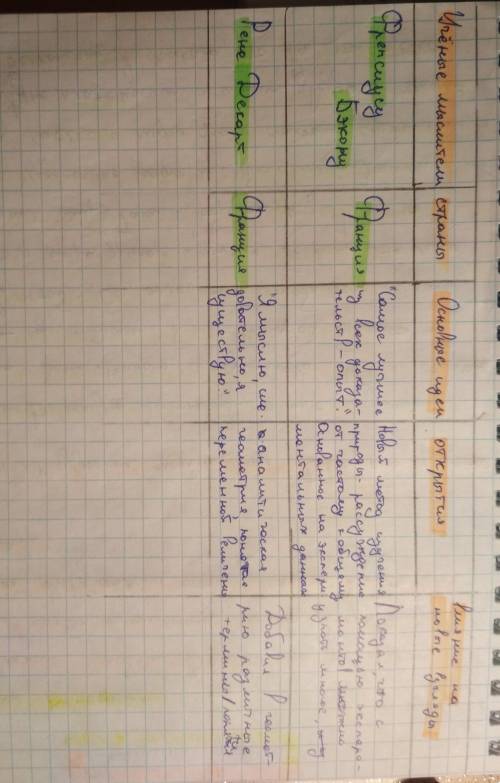 Учёные мыслители
страны
Основные идеи
открытия
Влияние на
новые взгляды
Френсису
Бэкону
Франция
"Самое лучшее
из всех доказа-
тельств - опыт."
Новый метод изучения
природы - рассуждение
от частному к общему
Основанное на экспери
ментальных данных
Показал, что с
помощью экспери-
узнать многое,
Рене Декарт
Франция
"Я мыслю, сле-
довательно, я
существую"
аналитическая
геометрия, понятие
переменной величены
Добавил в геомет-
рию различные